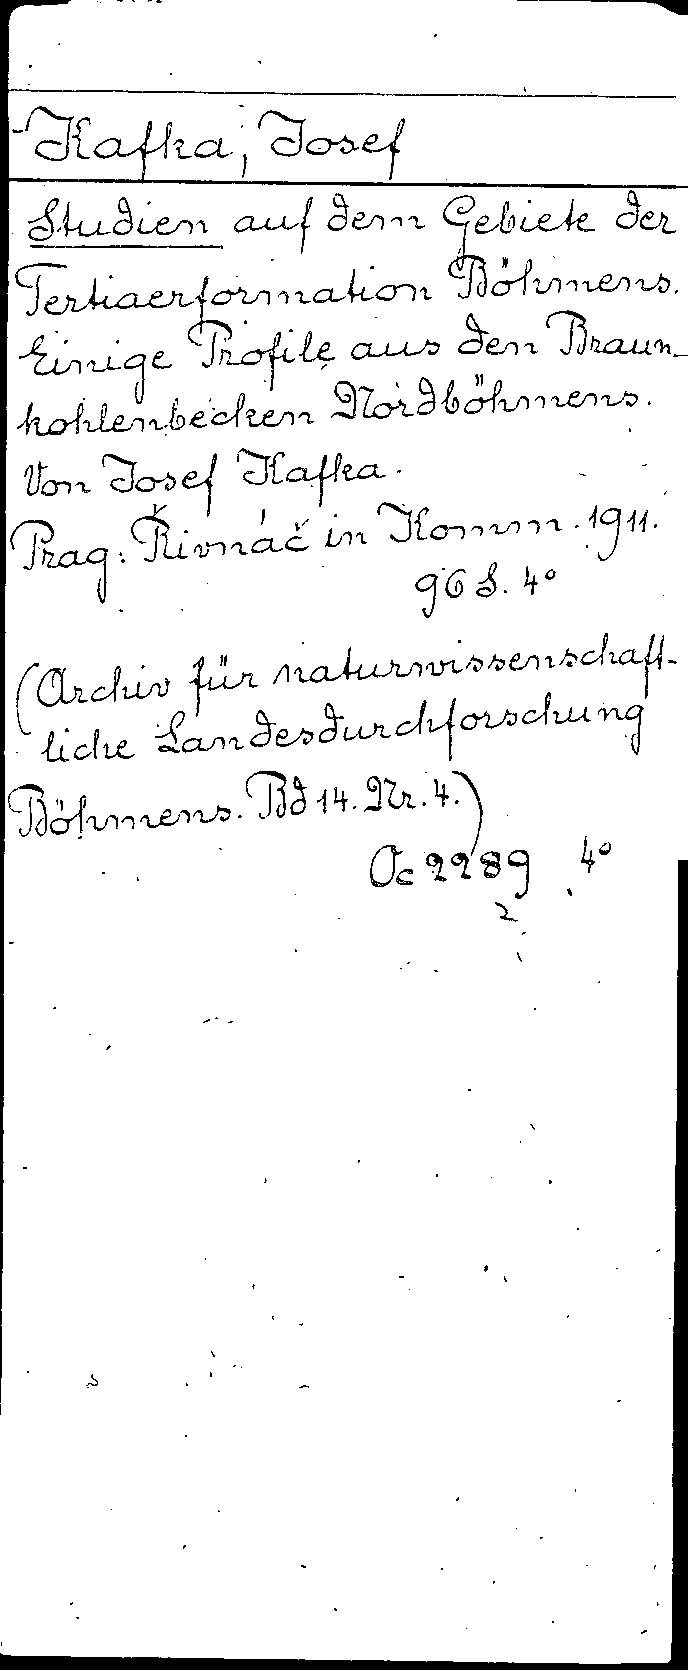 Kafka, Josef
Studien auf dem Gebiete der
Tertiaerformation Böhmens.
Einige Profile aus den Braun-
kohlenbecken Nordböhmens.
Von Josef Kafka.
Prag: Řivnáč in Komm. 1911.
96 S. 4°
(Archiv für naturwissenschaft-
liche Landesdurchforschung
Böhmens. Bd 14. Nr. 4.)
Oc 2289 4°
2